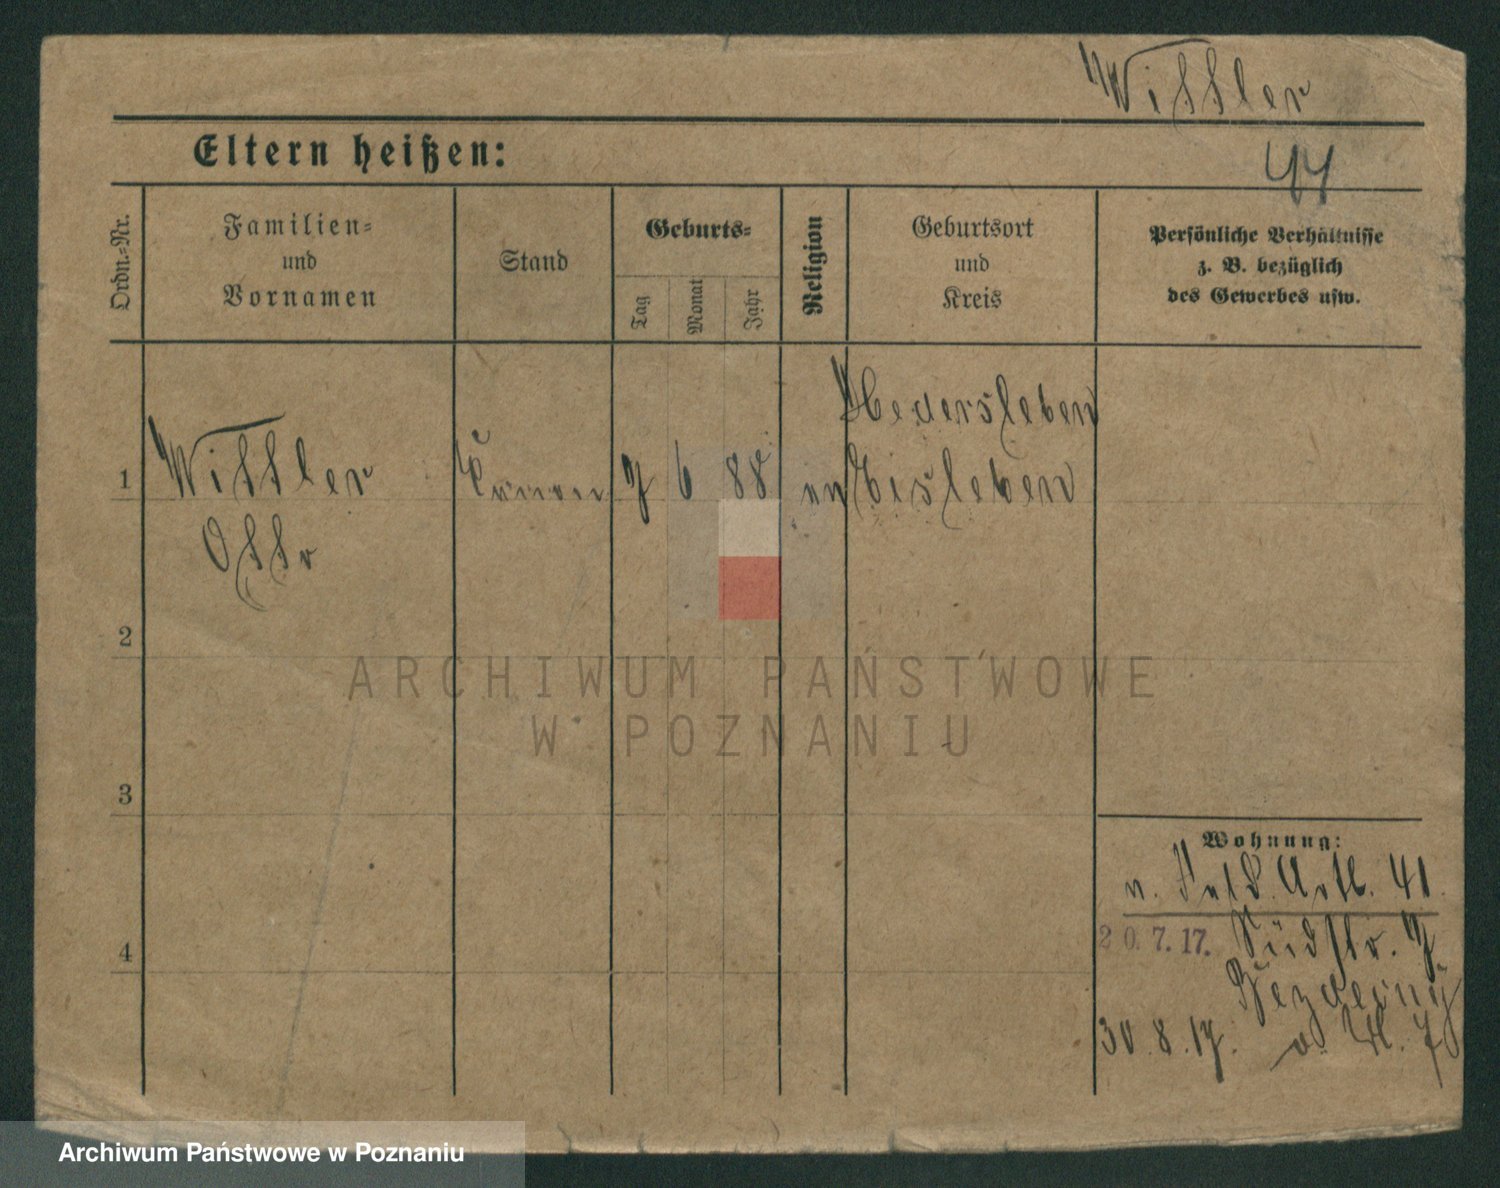 Wittler
44
Eltern heißen:
Ordn.-Nr.
Familien- und Vornamen
Stand
Geburts-
Tag
Monat
Jahr
Religion
Geburtsort und Kreis
Persönliche Verhältnisse z. B. bezüglich des Gewerbes usw.
1
Wittler
Otto
7
6
88
ev
Hedersleben
Eisleben
2
3
4
Wohnung:
n. Feld Artl. 41.
20.7.17. Südstr. 7
30.8.17.
ARCHIWUM PAŃSTWOWE
W POZNANIU
Archiwum Państwowe w Poznaniu